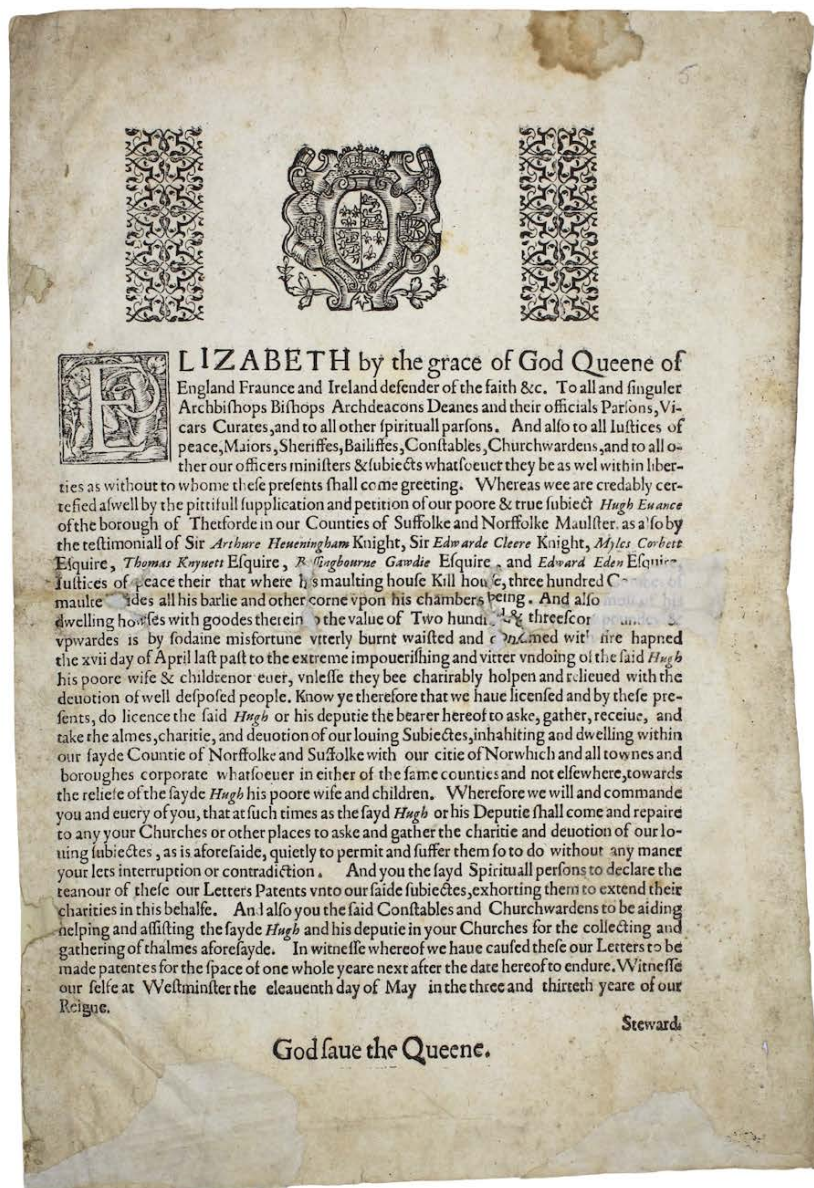 5
ELIZABETH by the grace of God Queene of
England Fraunce and Ireland defender of the faith &c. To all and singuler
Archbiſhops Biſhops Archdeacons Deanes and their officials Parſons, Vi-
cars Curates, and to all other ſpirituall parſons. And alſo to all Iuſtices of
peace, Maiors, Sheriffes, Bailiffes, Conſtables, Churchwardens, and to all o-
ther our officers miniſters & ſubiects whatſoeuer they be as wel within liber-
ties as without to whome theſe preſents ſhall come greeting. Whereas wee are credably cer-
tefied aſwell by the pittifull ſupplication and petition of our poore & true ſubiect Hugh Euance
of the borough of Thetforde in our Counties of Suffolke and Norffolke Maulſter. as alſo by
the teſtimoniall of Sir Arthure Heueningham Knight, Sir Edwarde Cleere Knight, Myles Corbett
Eſquire, Thomas Knyuett Eſquire, Gawdie Eſquire, and Edward Eden Eſquire
Iuſtices of peace their that where his maulting houſe Kill houſe, three hundred
maulte all his barlie and other corne vpon his chambers being. And alſo
dwelling howſes with goodes therein the value of Two threeſcor
vpwardes is by ſodaine misfortune vtterly burnt waiſted and with fire hapned
the xvii day of April laſt paſt to the extreme impoueriſhing and vtter vndoing of the ſaid Hugh
his poore wife & childrenor euer, vnleſſe they bee charirably holpen and relieued with the
deuotion of well deſpoſed people. Know ye therefore that we haue licenſed and by theſe pre-
ſents, do licence the ſaid Hugh or his deputie the bearer hereof to aske, gather, receiue, and
take the almes, charitie, and deuotion of our louing Subiectes, inhahiting and dwelling within
our ſayde Countie of Norffolke and Suffolke with our citie of Norwhich and all townes and
boroughes corporate whatſoeuer in either of the ſame counties and not elſewhere, towards
the reliefe of the ſayde Hugh his poore wife and children. Wherefore we will and commande
you and euery of you, that at ſuch times as the ſayd Hugh or his Deputie ſhall come and repaire
to any your Churches or other places to aske and gather the charitie and deuotion of our lo-
uing ſubiectes, as is aforeſaide, quietly to permit and ſuffer them ſo to do without any maner
your lets interruption or contradiction. And you the ſayd Spirituall perſons to declare the
teanour of theſe our Letters Patents vnto our ſaide ſubiectes, exhorting them to extend their
charities in this behalfe. And alſo you the ſaid Conſtables and Churchwardens to be aiding
helping and aſſiſting the ſayde Hugh and his deputie in your Churches for the collecting and
gathering of thalmes aforeſayde. In witneſſe whereof we haue cauſed theſe our Letters to be
made patentes for the ſpace of one whole yeare next after the date hereof to endure. Witneſſe
our ſelfe at Weſtminſter the eleauenth day of May in the three and thirteth yeare of our
Reigne.
Steward.
God ſaue the Queene.